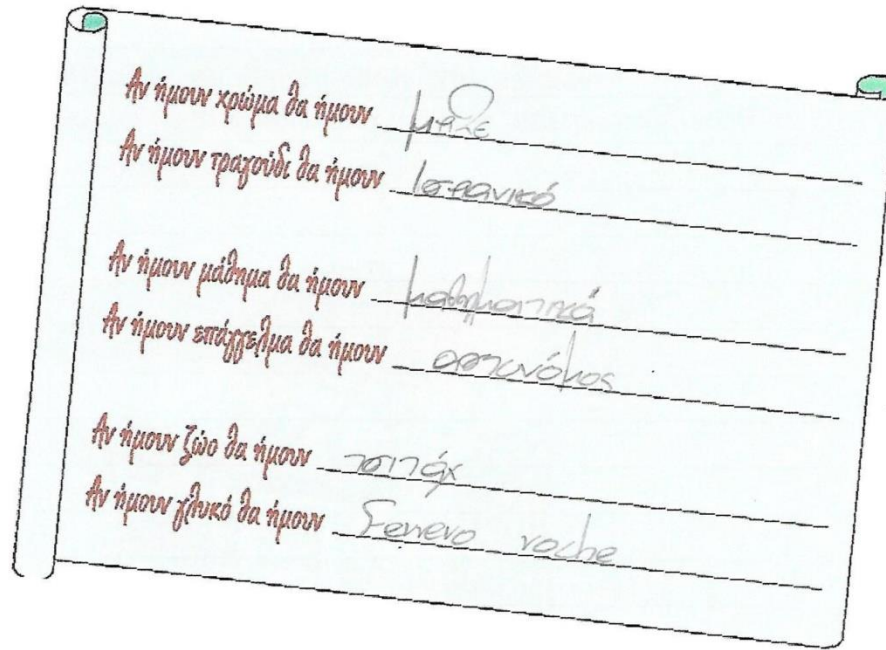 Αν ήμουν χρώμα θα ήμουν μπλε
Αν ήμουν τραγούδι θα ήμουν Ισπανικό
Αν ήμουν μάθημα θα ήμουν μαθηματικά
Αν ήμουν επάγγελμα θα ήμουν αστυνόμος
Αν ήμουν ζώο θα ήμουν τσιτάχ
Αν ήμουν γλυκό θα ήμουν Ferrero roche